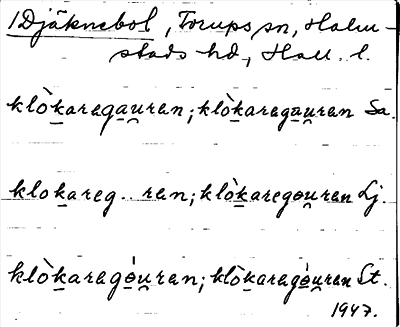 1 Djäknebol, Torups sn, Halm-
stads hd, Hall. l.
klòk̲arega̲u̲̯ren; klòk̲arega̲u̲̯ren Sa.
klok̲areg..ren; klòk̲aregɵu̯ren Lj.
klòk̲aregɵ̲̀u̯ren; klòk̲aregɵ̲̀u̯ren St.
1947.